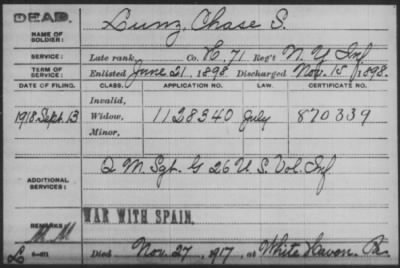 DEAD.
NAME OF SOLDIER: Lunz, Chase S.
SERVICE: Late rank, Co. E, 71 Reg't N. Y. Inf
TERM OF SERVICE: Enlisted June 21, 1898. Discharged Nov. 15, 1898.
DATE OF FILING. CLASS. APPLICATION NO. LAW. CERTIFICATE NO.
Invalid,
1918 Sept. 13 Widow, 1128340 July 870339
Minor,
ADDITIONAL SERVICES: Q M. Sgt. G 26 U S. Vol. Inf
WAR WITH SPAIN.
REMARKS:
Died Nov. 27, 1917, at White Haven. Pa.